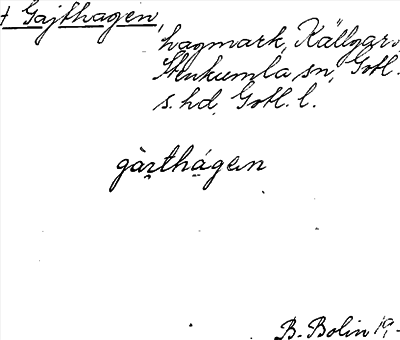 † Gajthagen,
hagmark, Källgår
Stenkumla sn, Gotl.
s. hd, Gotl. l.
gàrthágen
B. Bolin 19